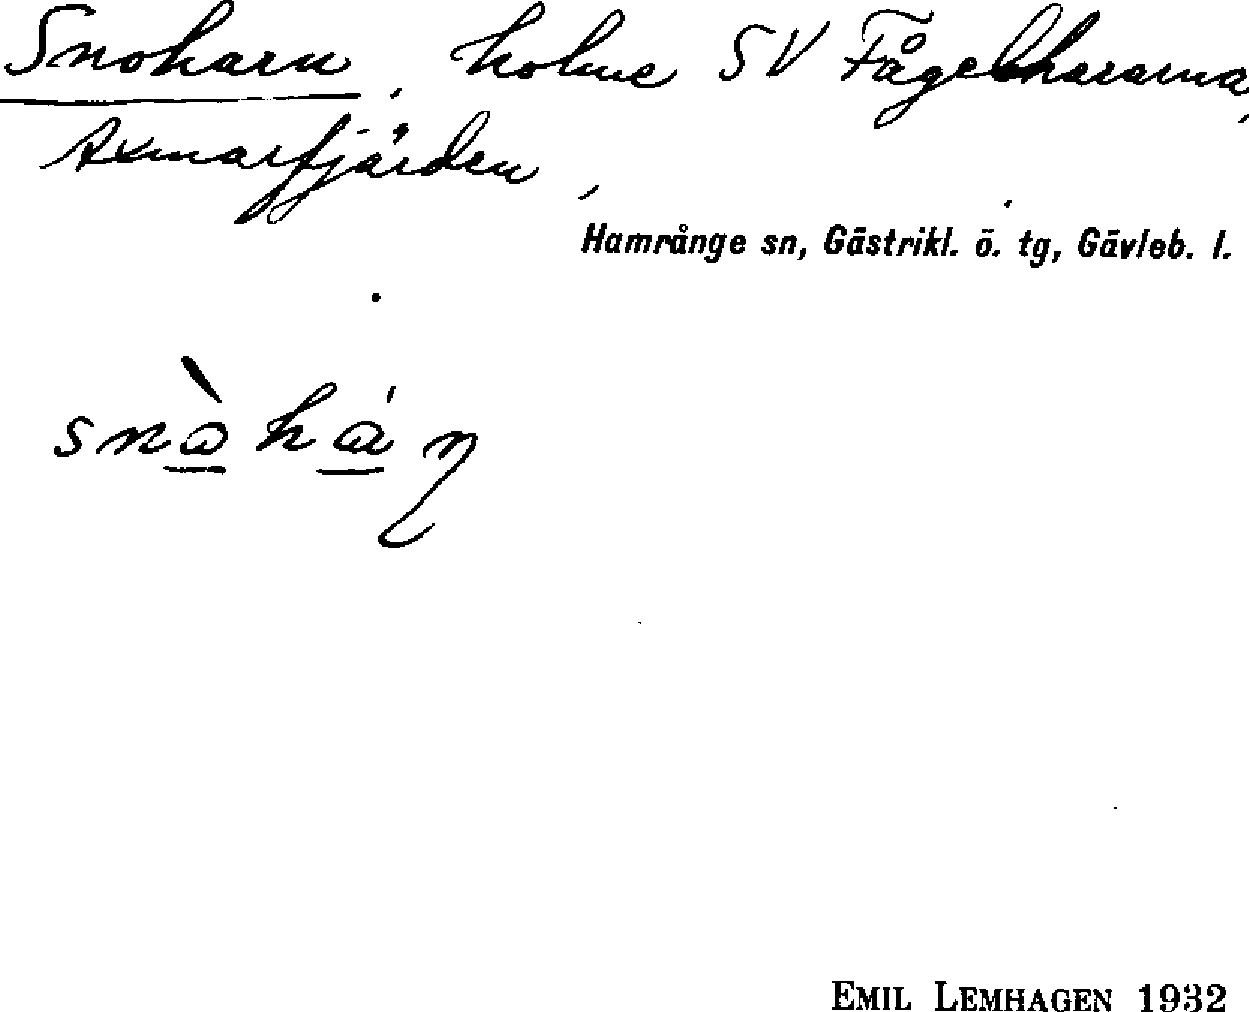 Snoharn, holme SV Fågelhararna,
Axmarfjärden,
Hamrånge sn, Gästrikl. ö. tg, Gävleb. l.
EMIL LEMHAGEN 1932